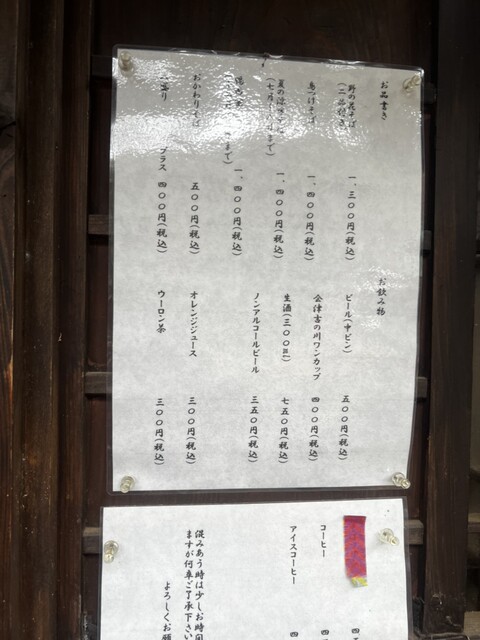 お品書き
野の花そば
(二品付き)
一、三〇〇円(税込)
鳥つけそば
一、四〇〇円(税込)
夏の
一、四〇〇円(税込)
まで)
一、四〇〇円(税込)
おかわりそば
五〇〇円(税込)
盛り
プラス 四〇〇円(税込)
お飲み物
ビール(中ビン)
五〇〇円(税込)
会津吉の川ワンカップ
四〇〇円(税込)
生酒(三〇〇㎖)
七五〇円(税込)
ノンアルコールビール
三五〇円(税込)
オレンジジュース
三〇〇円(税込)
ウーロン茶
三〇〇円(税込)
コーヒー
四
アイスコーヒー
四
混みあう時は少しお時間
ますが何卒ご了承下さい
よろしくお願